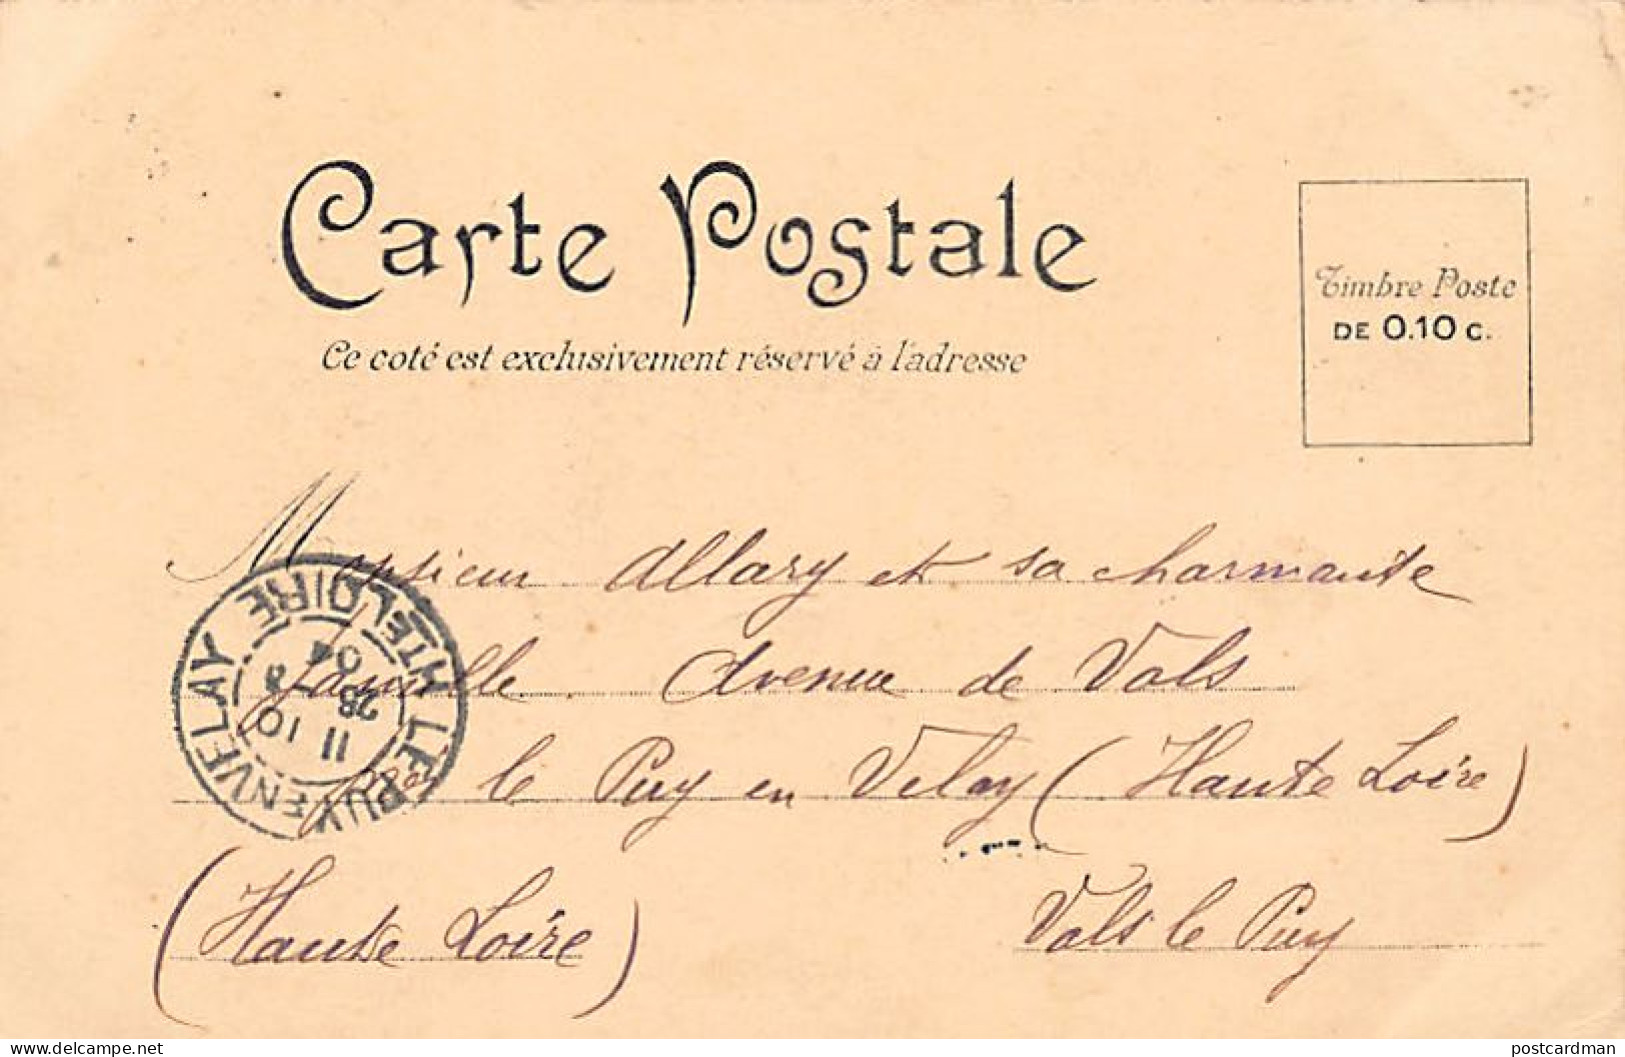 Carte Postale
Ce coté est exclusivement réservé à l'adresse
Timbre Poste
DE 0.10 C.
Monsieur Allary et sa charmante
famille Avenue de Vals
près le Puy en Velay (Haute Loire)
(Haute Loire)
Vals le Puy
LE PUY EN VELAY HTE LOIRE
11 10
28 9
04
www.delcampe.net
postcardman